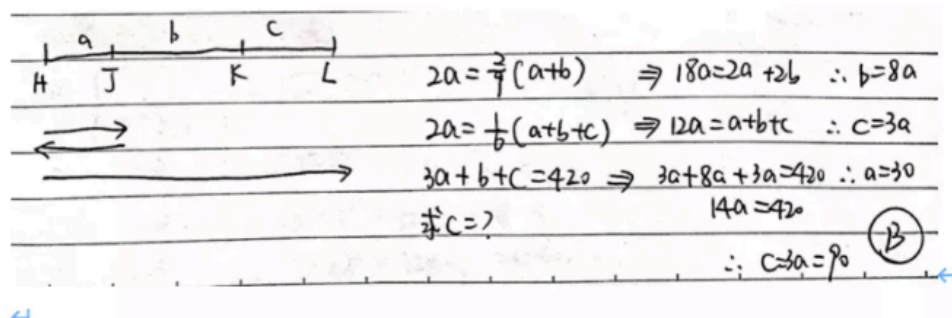 a b c
H J K L
2a = 2/9 (a+b) ⇒ 18a=2a+2b ∴ b=8a
2a = 1/6 (a+b+c) ⇒ 12a=a+b+c ∴ c=3a
3a+b+c=420 ⇒ 3a+8a+3a=420 ∴ a=30
求c=? 14a=420
B
∴ c=3a=90